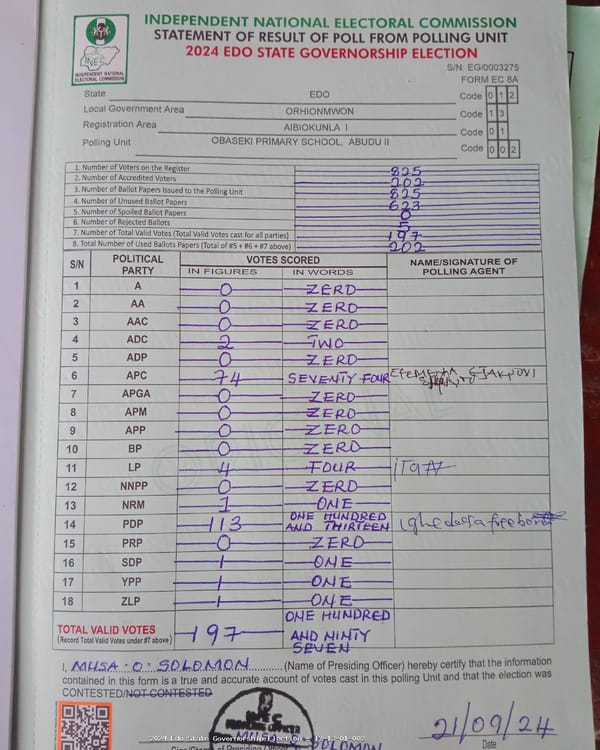 INDEPENDENT NATIONAL ELECTORAL COMMISSION
STATEMENT OF RESULT OF POLL FROM POLLING UNIT
2024 EDO STATE GOVERNORSHIP ELECTION
INEC
INDEPENDENT NATIONAL
ELECTORAL COMMISSION
S/N: EG/0003275
FORM EC 8A
State EDO Code 0 1 2
Local Government Area ORHIONMWON Code 1 3
Registration Area AIBIOKUNLA I Code 0 1
Polling Unit OBASEKI PRIMARY SCHOOL, ABUDU II Code 0 0 2
1. Number of Voters on the Register 825
2. Number of Accredited Voters 202
3. Number of Ballot Papers Issued to the Polling Unit 825
4. Number of Unused Ballot Papers 623
5. Number of Spoiled Ballot Papers 0
6. Number of Rejected Ballots 5
7. Number of Total Valid Votes (Total Valid Votes cast for all parties) 197
8. Total Number of Used Ballots Papers (Total of #5 + #6 + #7 above) 202
S/N POLITICAL PARTY VOTES SCORED NAME/SIGNATURE OF POLLING AGENT
IN FIGURES IN WORDS
1 A 0 ZERO
2 AA 0 ZERO
3 AAC 0 ZERO
4 ADC 2 TWO
5 ADP 0 ZERO
6 APC 74 SEVENTY FOUR
7 APGA 0 ZERO
8 APM 0 ZERO
9 APP 0 ZERO
10 BP 0 ZERO
11 LP 4 FOUR
12 NNPP 0 ZERO
13 NRM 1 ONE
14 PDP 113 ONE HUNDRED AND THIRTEEN
15 PRP 0 ZERO
16 SDP 1 ONE
17 YPP 1 ONE
18 ZLP 1 ONE
TOTAL VALID VOTES 197 ONE HUNDRED AND NINTY SEVEN
(Record Total Valid Votes under #7 above)
I, MUSA·O·SOLOMON (Name of Presiding Officer) hereby certify that the information
contained in this form is a true and accurate account of votes cast in this polling Unit and that the election was
CONTESTED/NOT CONTESTED
21/09/24
2024 Edo State Governorship Election - 12-13-01-002
SOLOMON
Date